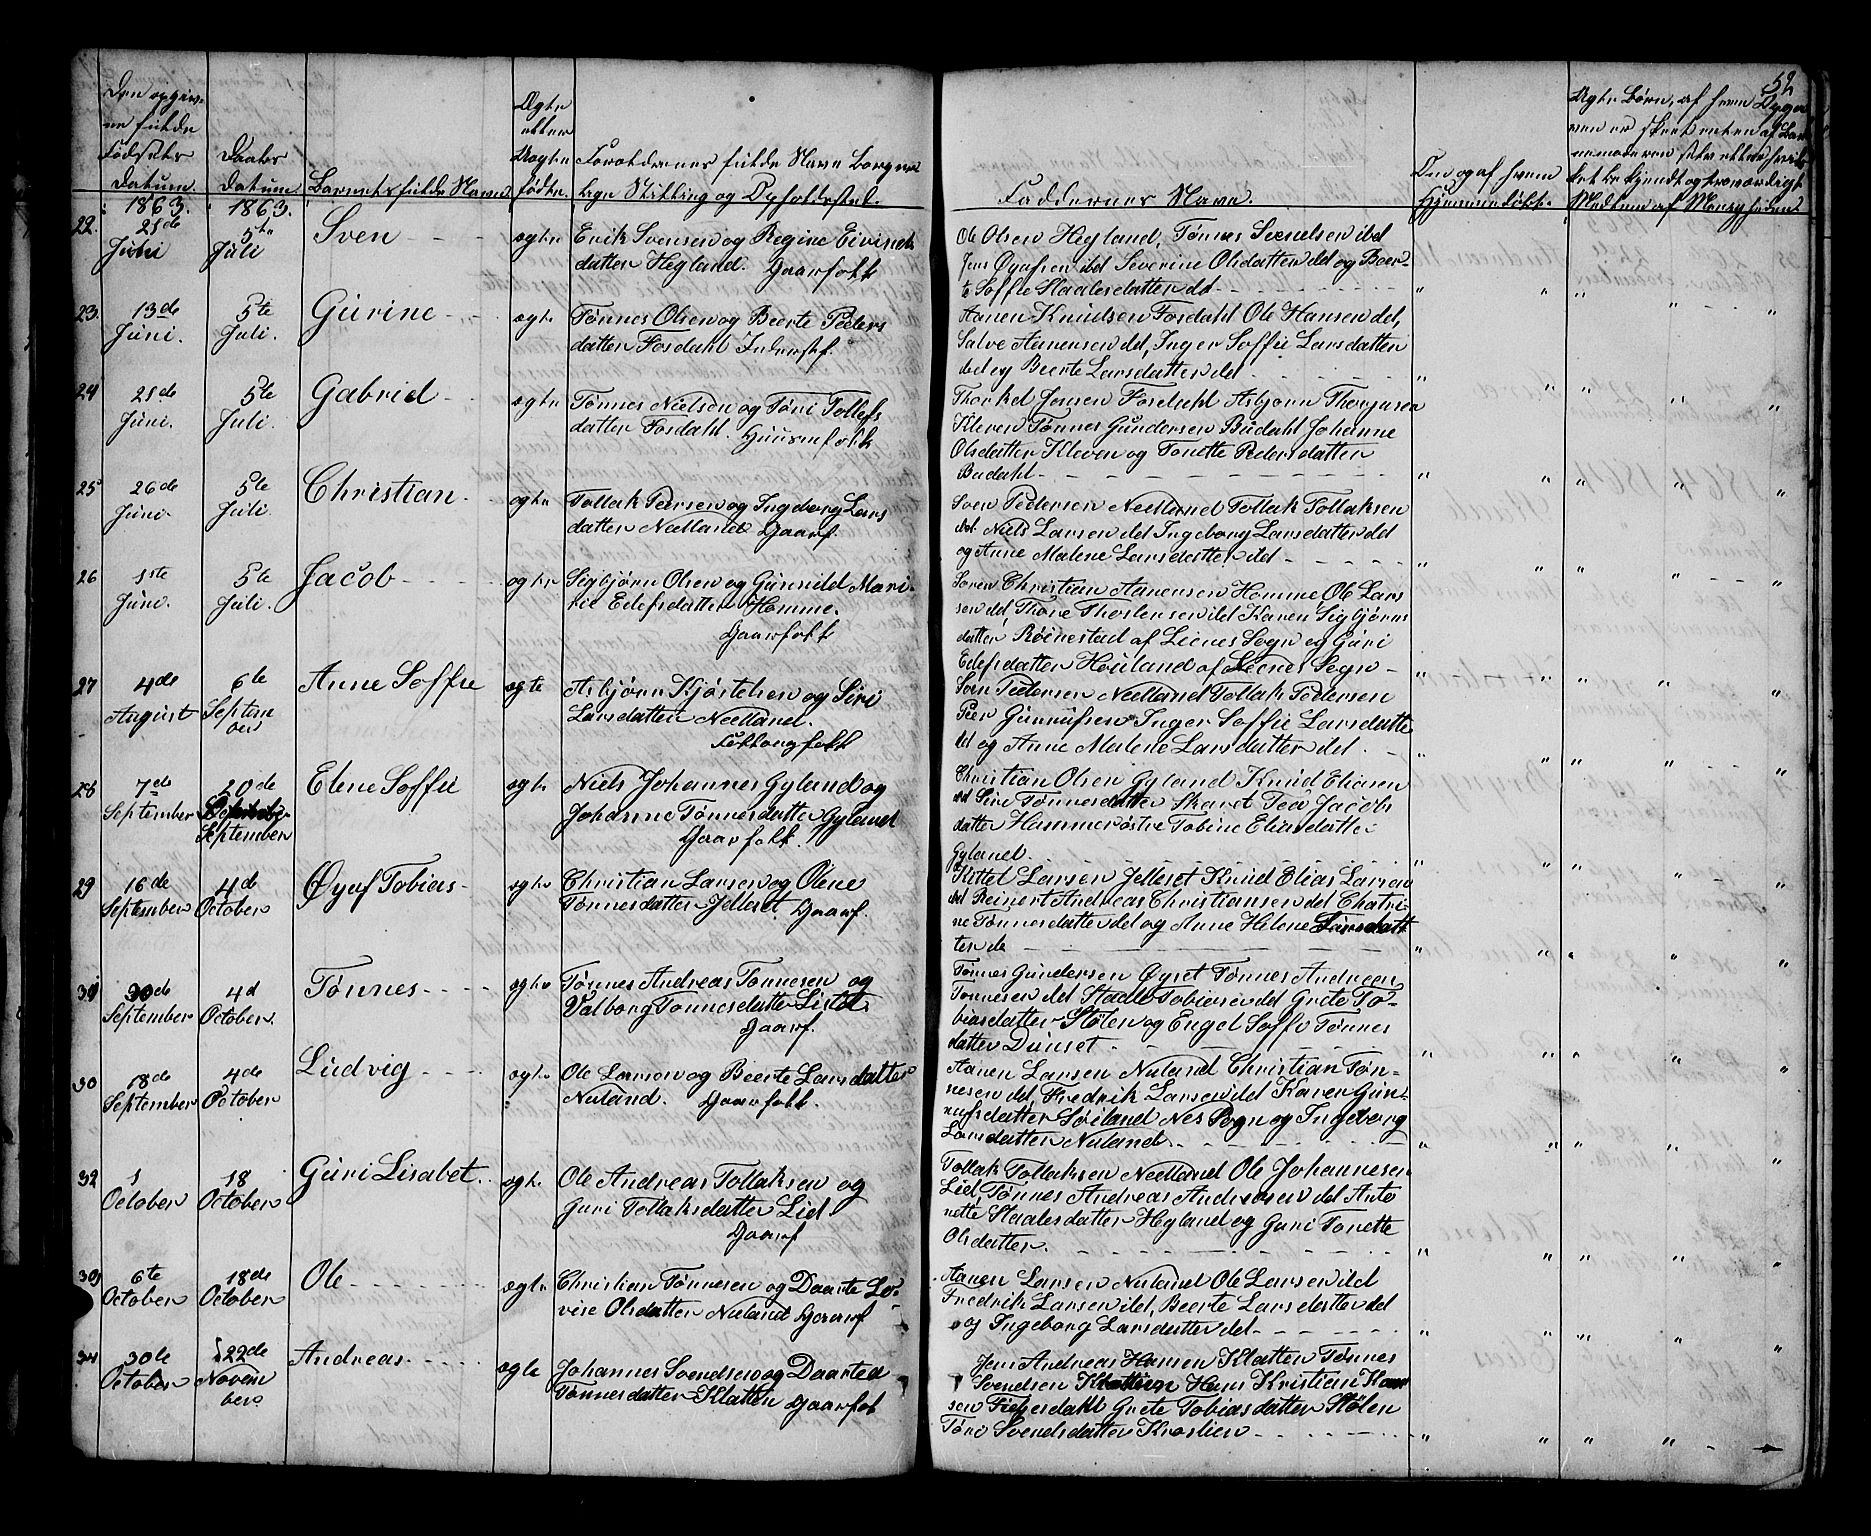 52
Den opgiv-
ne fulde
Fødsels
Datum.
Daabs
Datum
Barnets fulde Navn.
Ægte
eller
Uægte
fødte.
Forældrenes fulde Navn Borger
lige Stilling og Opholdsted.
Faddernes Navn.
Om og af hvem
Hjemmedøbt.
1863. 1863.
22. 21de Juni 5te Juli Sven - - - ægte Erik Svensen og Regine Eivinds
datter Hegland. Gaarfolk
Ole Olsen Hegland, Tønnes Svenelsen ibd
Jens Øyufsen ibd Severine Olsdatter dd og Beer-
te Soffie Staalesdatter dd - - -
23. 13de Juni. 5te Juli. Gurine - - - ægte Tønnes Olsen og Beerte Peders
datter Fosdahl Inderstf.
Aanen Knudsen Fosdahl Ole Hansen dd,
Salve Aanensen dd, Inger Soffie Larsdatter
dd og Beerte Larsdatter dd
24 21de Juni. 5te Juli. Gabriel - - ægte Tønnes Nielsen og Tøni Tollefs
datter Fosdahl. Huusmfolk
Thorkel Jensen Fosdahl Asbjørn Thorjusen
Kleven Tønnes Gundersen Budahl Johanne
Olsdatter Kleven og Tonette Pedersdatter
Budahl - - -
25 26de Juni. 5te Juli. Christian. - ægte Tollak Peersen og Ingeborg Lars
datter Neelland Gaarf.
Sven Pedersen Neelland Tollak Tollaksen
dd. Niels Larsen dd Ingeborg Larsdatter dd
og Anne Malene Larsdatter dd - - -
26 1ste Juni. 5te Juli. Jacob - - - ægte Sigbjørn Olsen og Gunvild Mari-
tie Edefsdatter Homme.
Gaarfolk
Søren Christian Aanensen Homme Ole Lars
sen dd, Thore Thorlensen dd Karen Sigbjørns
datter Røinestad af Lienes Sogn og Guri
Edefsdatter Houland af Lienes Sogn -
27 4de August 6te Septem
ber Anne Soffie ægte Asbjørn Kjøstelsen og Siri
Larsdatter Neelland.
Folkongfolk
Sven Pedersen Neelland Tollak Pedersen
Peer Gunnufsen Inger Soffie Larsdatte
dd og Anne Malene Larsdatter dd. -
28 7de September 20de
September Elene Soffie ægte Niels Johannes Gyland og
Johanne Tønnesdatter Gyland
Gaarfolk.
Christian Olsen Gyland Knud Eliasen
dd Sire Tønnesdatter Skaret Tea Jacobs
datter Hammerøstre Tobine Eliasdatter
Gyland. - - -
29 16de September 4de October Øyuf Tobias - ægte Christian Larsen og Olene
Tønnesdatter Jelleset Gaarf.
Kittel Larsen Jelleset Knud Elias Larsen
dd Reinert Andreas Christiansen dd Chatri-
ne Tønnesdatter dd og Anne Helene Larsdatt
ter de
30de September 4d October. Tønnes - - - ægte Tønnes Andreas Tønnesen og
Valborg Tønnesdatter Listøl.
Gaarf.
Tønnes Gundersen Øyset Tønnes Andreen
Tønnesen dd Staale Tobiasen dd Grete To-
biasdatter Stølen og Engel Soffe Tønnes
datter Dunset -
30 18de September 4de October Ludvig - - - ægte Ole Larsen og Beerte Larsdatter
Nuland. Gaarfolk.
Aanen Larsen Nuland Christian Tøn-
nesen dd, Fredrik Larsen dd Karen Gun-
nufsdatter Søiland Nes Sogn og Ingeborg
Larsdatter Nuland. - - -
32 1 October 18 October Guri Lisabet. ægte. Ole Andreas Tollaksen og
Guri Tollaksdatter Lid
Gaarf
Tollak Tollaksen Neelland Ole Johannesen
Lid Tønnes Andreas Andreasen dd Anto
nette Staalesdatter Hegland og Guri Tonette
Olsdatter. - - -
6te October 18de October Ole - - - ægte Christian Tønnesen og Daarte Lo-
vise Olsdatter Nuland Gaarf
Aanen Larsen Nuland Ole Larsen dd
Fredrik Larsen dd, Beerte Larsdatter dd
og Ingeborg Larsdatter dd - - -
34 30te October 22de Novem
ber Andreas. - - - ægte Johannes Svendsen og Daartea
Tønnesdatter Klatten Gaarfol
Jens Andreas Hansen Klatten Tønnes
Svendsen Hans Kristian
sen Grete Tobiasdatter Stølen
Tøri Svendsdatter